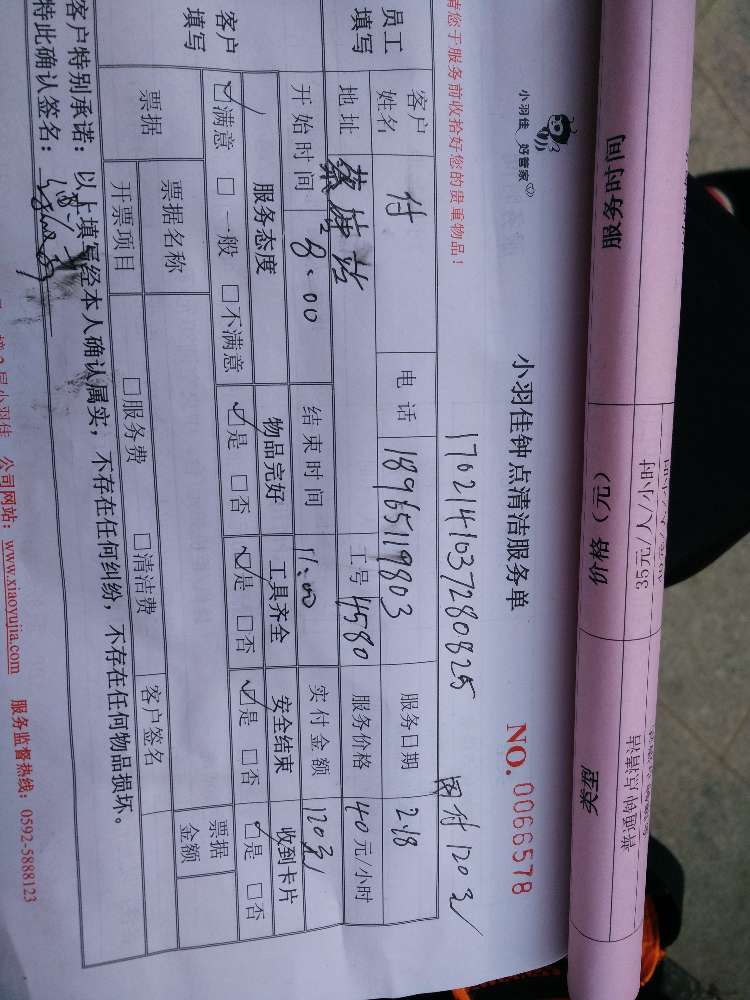 服务时间 价格（元） 类型
35元/人/小时 普通钟点清洁
小羽佳 好管家
小羽佳钟点清洁服务单 NO. 0066578
请您于服务前收拾好您的贵重物品！
1702141037280825 已付120元
员工填写 客户姓名 付 电话 18965119803 服务日期 2.18
地址 蔡塘站 工号 4580 服务价格 40元/小时
开始时间 8:00 结束时间 11:00 实付金额 120元
客户填写 服务态度 物品完好 工具齐全 安全结束 收到卡片
☑满意 □一般 □不满意 ☑是 □否 ☑是 □否 ☑是 □否 ☑是 □否
票据 票据名称 票据金额
开票项目 □服务费 □清洁费 客户签名
客户特别承诺：以上填写经本人确认属实，不存在任何纠纷，不存在任何物品损坏。
特此确认签名：
楼2层小羽佳 公司网站：www.xiaoyujia.com 服务监督热线：0592-5888123